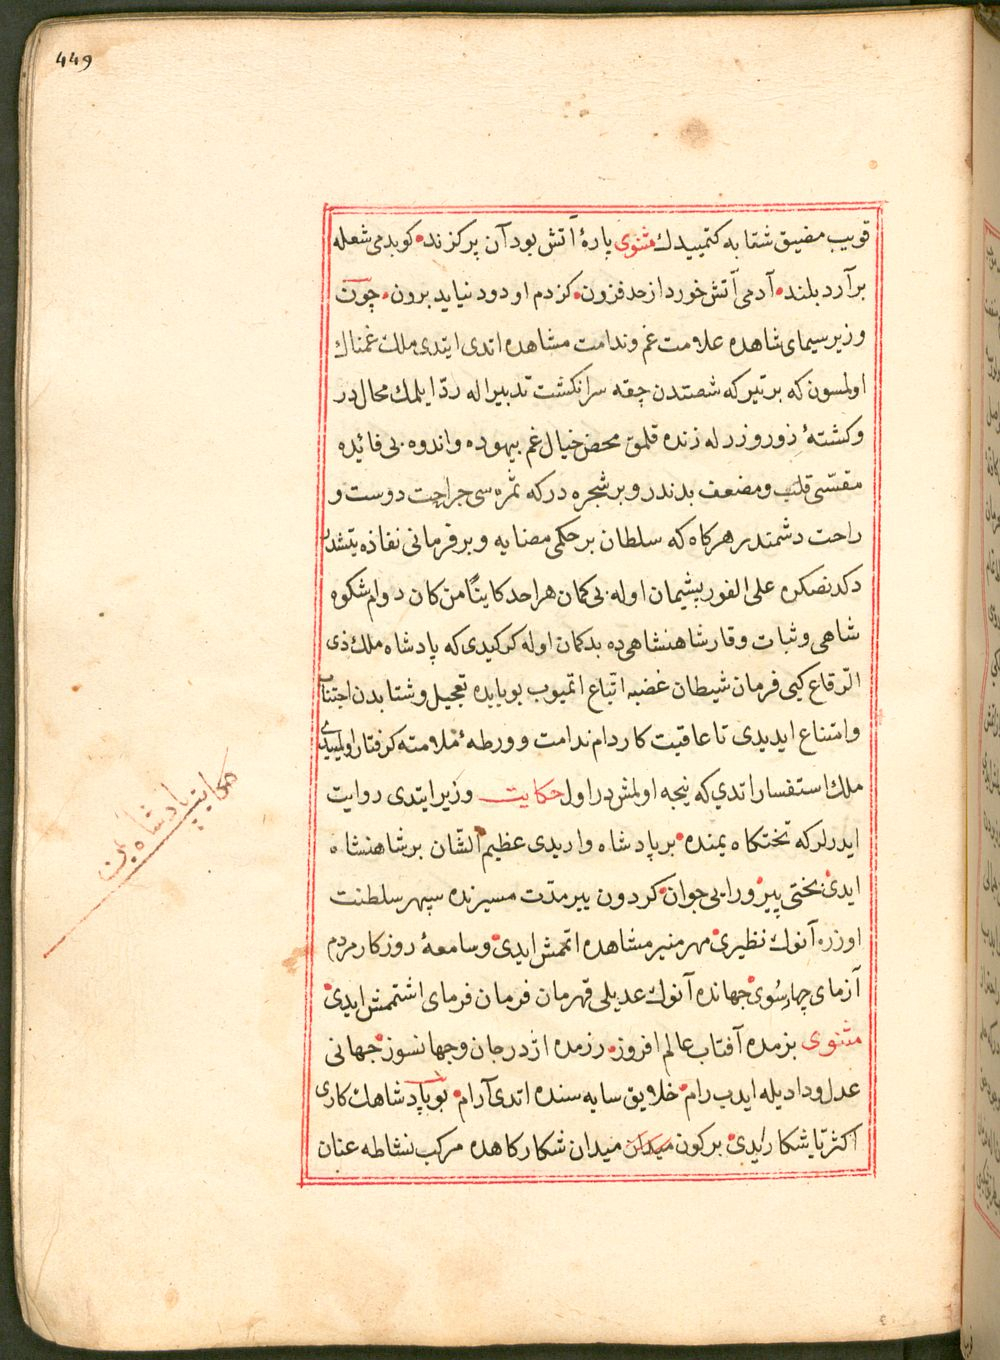 449
قویب مضیق شقابه کتمییدك مثنوی پارهٔ آتش بود آن پر کزند کوبدمی شعله
برآرد بلند آدمی آتش خورد از حد فزون کزدم او دود نیاید برون چون
وزیر سیمای شاهده علامت غم وندامت مشاهده اتدی ایتدی ملك غمناك
اولمسون که بر تیر که شصتدن چقه سرانکشت تدبیر اله ردّ ایلمك محال در
وکشتهٔ زور وزر له زنده قلمق محض خیال غم بیهوده واندوه بی فائیده
مقسّی قلب ومضعف بدندر وبر شجره در که ثمره سی جراحت دوست و
راحت دشمندر هرکاه که سلطان بر حکمی مضایه وبر فرمانی نفاذه یتشدر
دکدنصکره علی الفور پشیمان اوله بی کمان هر احد کاینًا من کان دوام شکوه
شاهی وثبات وقار شاهنشاهی ده بدکمان اوله کرکیدی که پادشاه ملك ذی
الرقاع کبی فرمان شیطان غضبه اتّباع اتمیوب بوبابده تعجیل وشتابدن اجتناب
وامتناع ایدیدی تا عاقبت کار دام ندامت وورطهٔ ملامته کرفتار اولمییدی
ملك استفسار اتدی که نیجه اولمش در اول حکایت وزیر ایتدی روایت
ایدرلر که تختکاه یمنده بر پادشاه واریدی عظیم الشّان بر شاهنشاه
ایدی بختی پیر ورایی جوان کردون پیر مدّت مسیرنده سپهر سلطنت
اوزره آنوك نظیری مهر منیر مشاهده اتمش ایدی وسامعهٔ روزکار مردم
آزمای چهارسوی جهانده آنوك عدیلی قهرمان فرمان فرمای اشتمش ایدی
مثنوی بزمده آفتاب عالم افروز رزمده اژدر جان وجهانسوز جهانی
عدل ودادیله ایدب رام خلایق سایه سنده اتدی آرام بو پادشاهك کاری
اکثریا شکار ایدی بر کون میدان شکارکاهده مرکب نشاطه عنان
حکایت پادشاه یمن